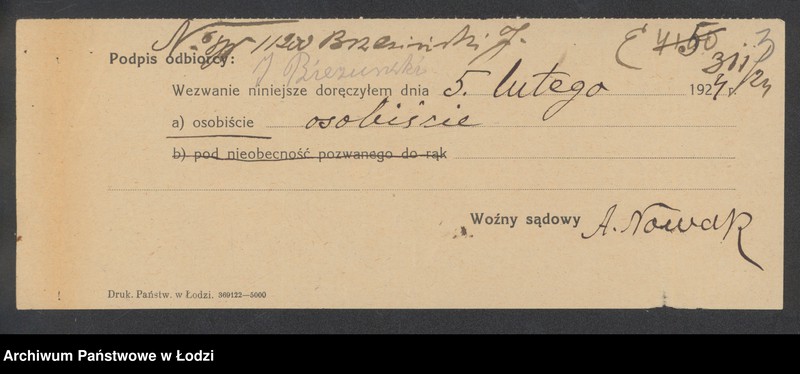 11200 Brzeziński J.
Podpis odbiorcy:
J Brzeziński
Wezwanie niniejsze doręczyłem dnia 5. lutego 1924 r.
a) osobiście osobiście
b) pod nieobecność pozwanego do rąk
Woźny sądowy A. Nowak
Druk. Państw. w Łodzi. 369122—5000
Archiwum Państwowe w Łodzi